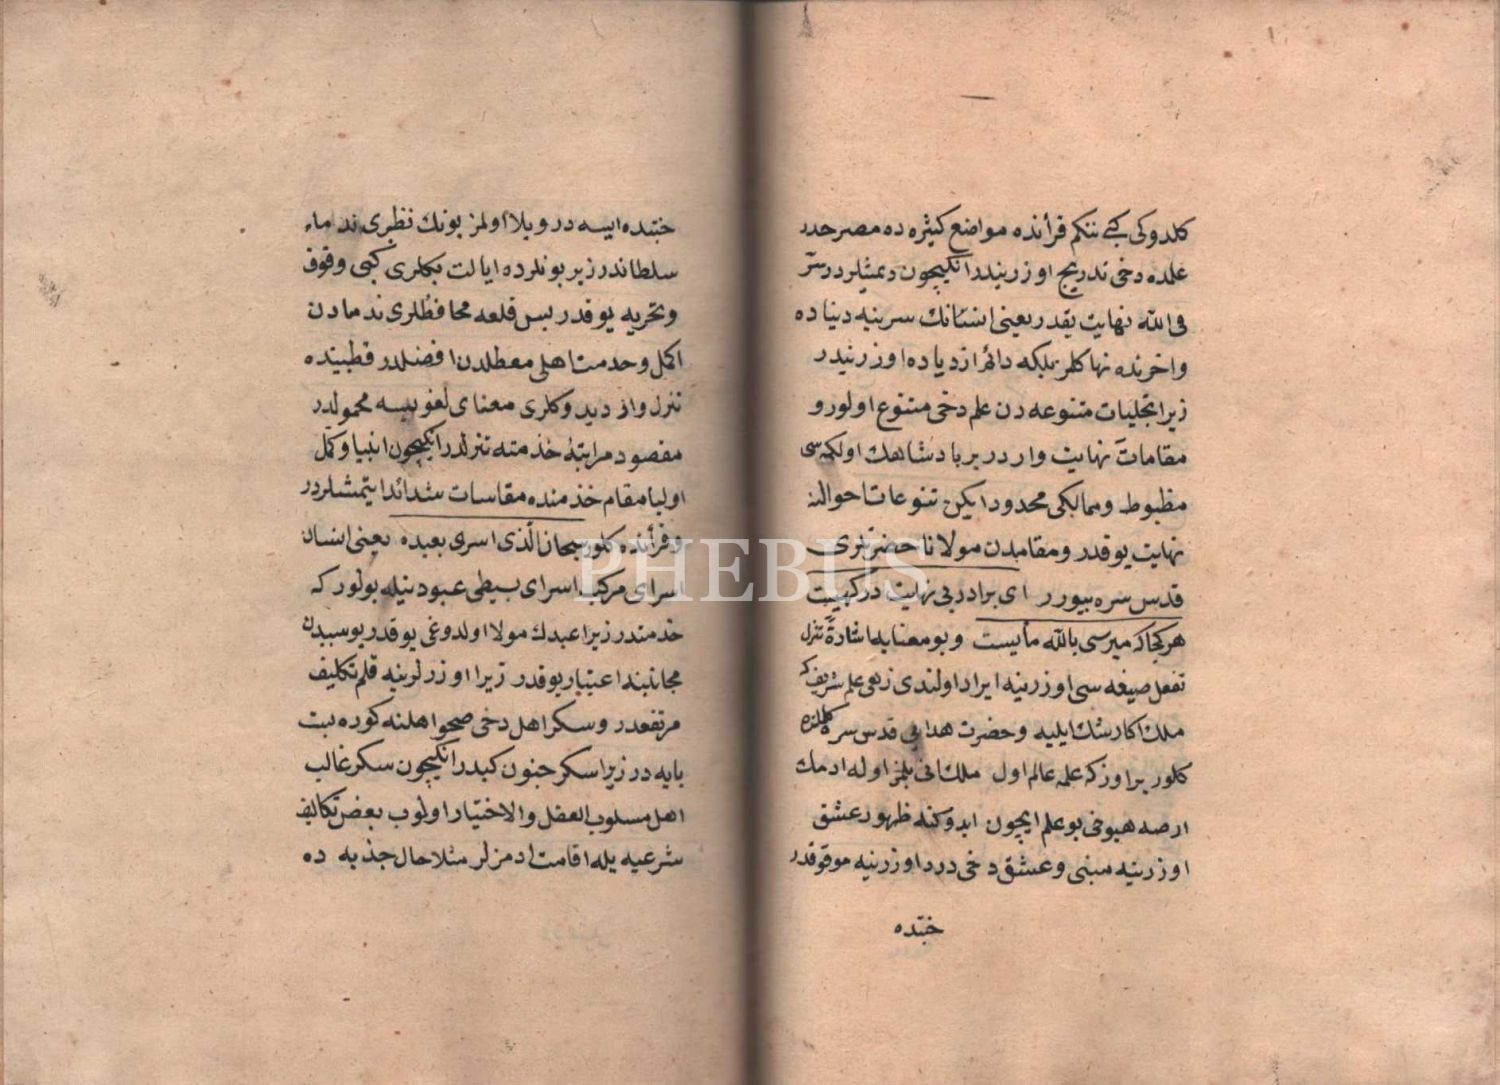 كلدوكى كبى نتكم قرأنده مواضع كثيره ده مصرحدر
علمده دخى تدريج اوزريندر انكيچون ديمشلردر سير
فى الله نهايت يقدر يعنى انسانك سرينه دنياده
واخرتده نها كلمز بلكه دائم ازدياده اوزرنيدر
زيرا تجليات متنوعه دن علم دخى متنوع اولور و
مقامات نهايت واردر بر بادشاهك اولكه سى
مظبوط وممالكى محدود ايكن تنوعات احوالنه
نهايت يوقدر ومقامدن مولانا حضرتلرى
قدس سره بيورر اى برادر بى نهايت دركهيست
هر كجا كه ميرسى بالله مأيست وبو معنايه اشارة تنزل
تفعل صيغه سى اوزرينه ايراد اولندى زهى علم شريف كه
ملك اكا رشك ايليه وحضرت هدايى قدس سره
كلور براوزكه علمه عالم اول ملك انى بلمز اوله ادمك
ارصه هبوطى بو علم ايچون ابدوكنه ظهور عشق
اوزرينه مبنى وعشق دخى درد اوزرينه موقوفدر
خبتده
خبتده ايسه درد وبلا اولمز بونك نظيرى ندماء
سلطاندر زير بونلرده ايالت بكلرى كبى وقوف
وتجربه يوقدر بس قلعه محافظلرى ندمادن
اكمل وخدمت اهلى معطلدن افضلدر قطبيتده
تنزل وازديد وكلرى معناى لغويسه محمولدر
مقصود مراتبۀ خذمته تنزلدر انكيچون انبيا وكمل
اوليا مقام خذمتده مقاسات شدائد ايتمشلردر
وقرأنده كلور سبحان الذى اسرى بعبده يعنى انسان
اسراى مركب اسراى بسيطى عبوديتيله بولور كه
خدمتدر زيرا عبدك مولا اولدوغى يوقدر بو سببدن
مجانينه اعتبار يوقدر زيرا اوزلرينه قلم تكليف
مرتفعدر وسكر اهل دخى صحو اهلنه كوره بست
پايه در زيرا سكر جنون كيدر انكيچون سكر غالب
اهل مسلوب العقل والاختيار اولوب بعض تكاليف
شرعيه يله اقامت ادمزلر مثلا حال جذبه ده
PHEBUS